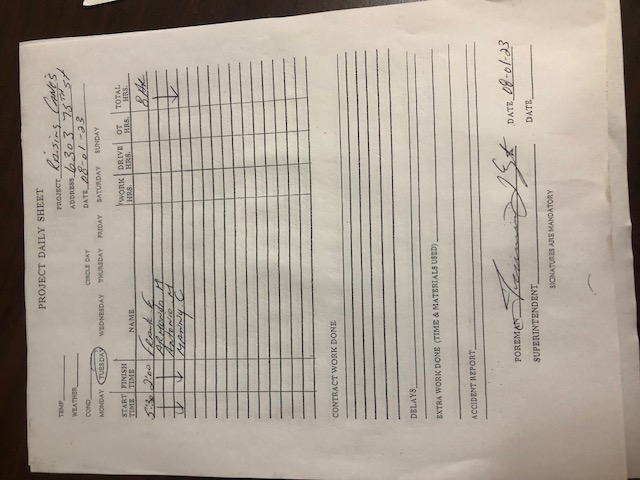 PROJECT DAILY SHEET
TEMP
PROJECT Raising CANE'S
WEATHER
ADDRESS 6303 75TH ST
COND
CIRCLE DAY
DATE 08-01-23
MONDAY TUESDAY WEDNESDAY THURSDAY FRIDAY SATURDAY SUNDAY
START TIME FINISH TIME NAME WORK HRS. DRIVE HRS. OT HRS. TOTAL HRS.
5:30 2:00 FRANK F 8 HR
ARMONDO M
ANTONIO M
MANNY C
CONTRACT WORK DONE
DELAYS
EXTRA WORK DONE (TIME & MATERIALS USED)
ACCIDENT REPORT
FOREMAN DATE 08-01-23
SUPERINTENDENT DATE
SIGNATURES ARE MANDATORY